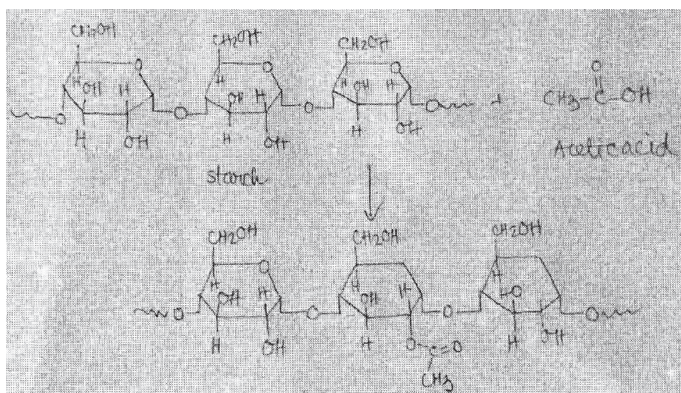 CH2OH CH2OH CH2OH
O O O O
H OH H H OH H H OH H CH3-C-OH
O O O O +
H OH H OH H OH
Acetic acid
starch
CH2OH CH2OH CH2OH
O
H OH H H OH H H O
O O O O
H OH H O-C=O H OH
CH3